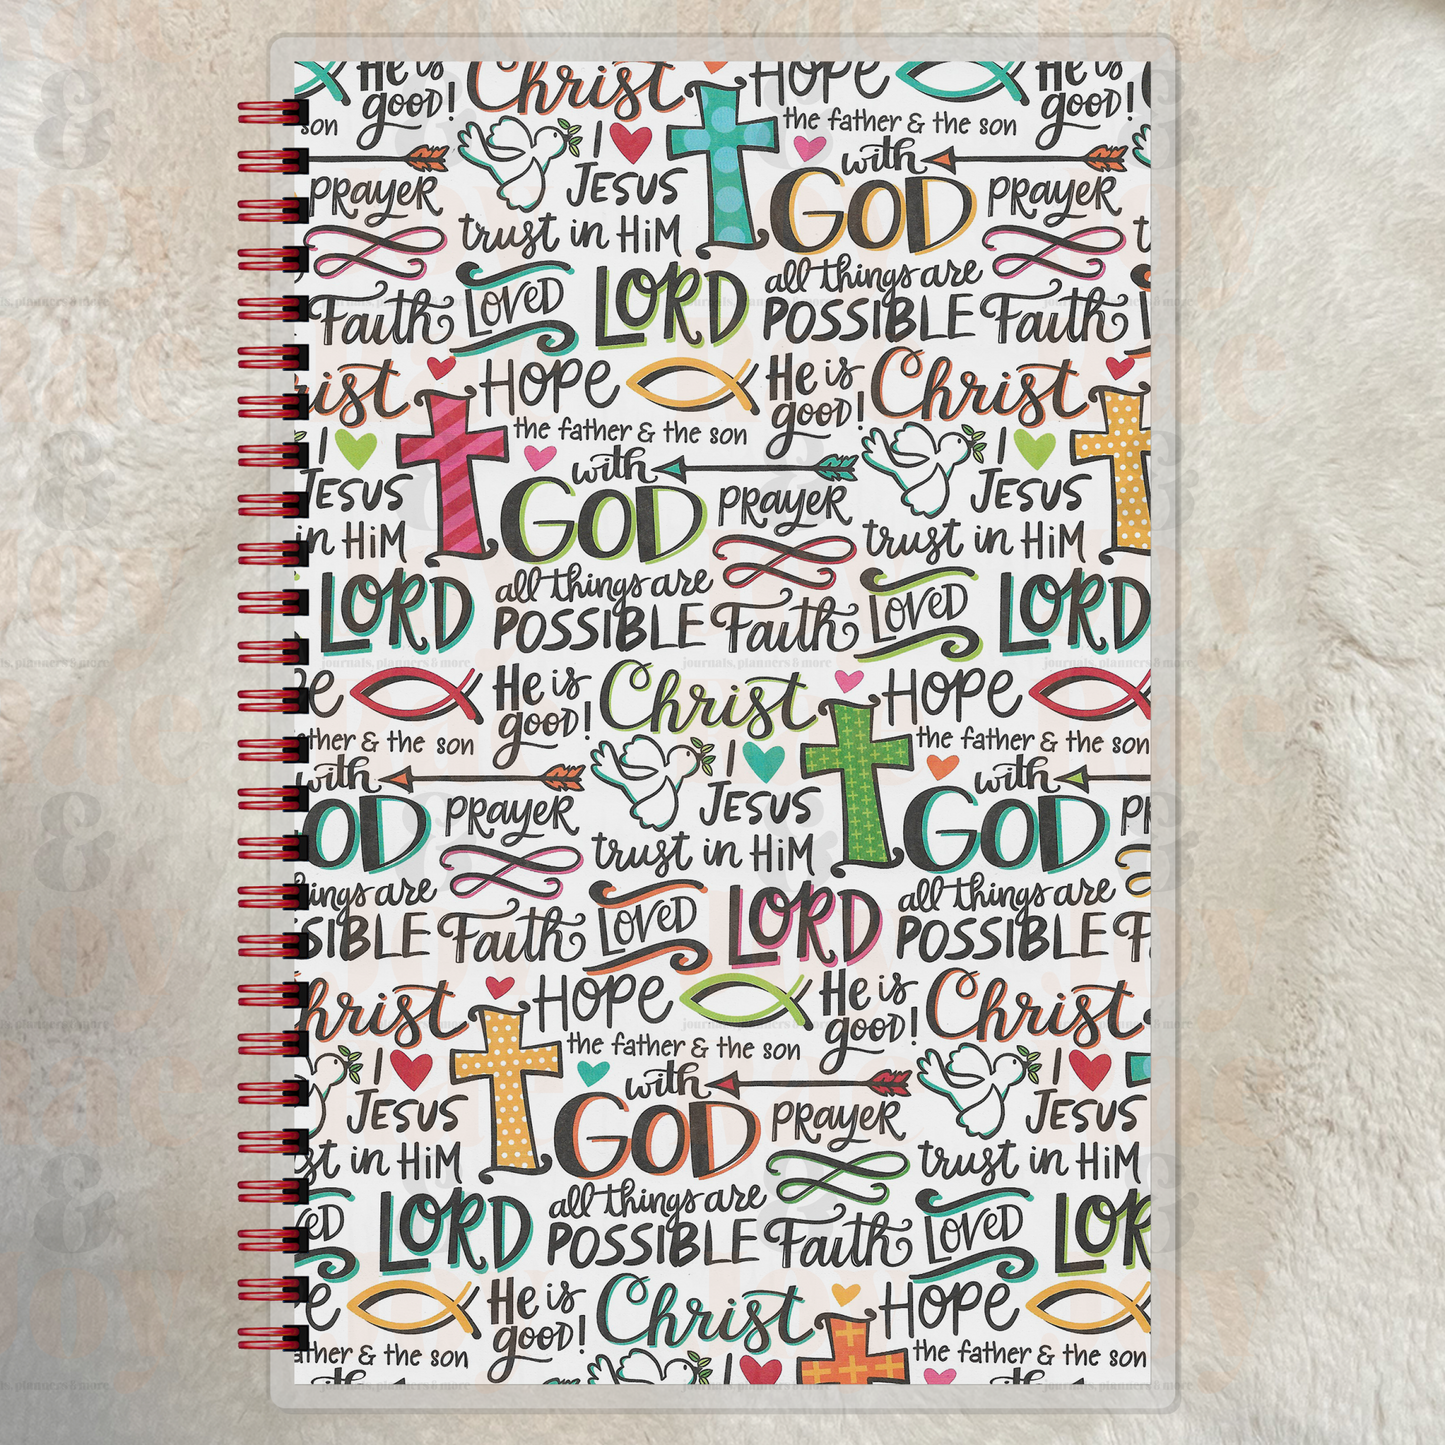 He is Christ HOPE He is
good! the father & the son good!
son I with
PRAYER JESUS GOD PRAYER
trust in HIM
Faith LOVED LORD all things are Faith
POSSIBLE
Christ HOPE He is Christ
the father & the son good!
I with I
JESUS GOD PRAYER JESUS
in HIM trust in HIM
LORD all things are Faith LOVED LORD
POSSIBLE
He is Christ HOPE
good!
father & the son I the father & the son
with PRAYER JESUS with
GOD trust in HIM GOD
things are Faith LOVED LORD all things are
POSSIBLE
Christ HOPE He is Christ
the father & the son good!
I with I
JESUS GOD PRAYER JESUS
in HIM trust in HIM
LORD all things are Faith LOVED LORD
POSSIBLE
He is Christ HOPE
good!
father & the son I the father & the son
journals, planners & more